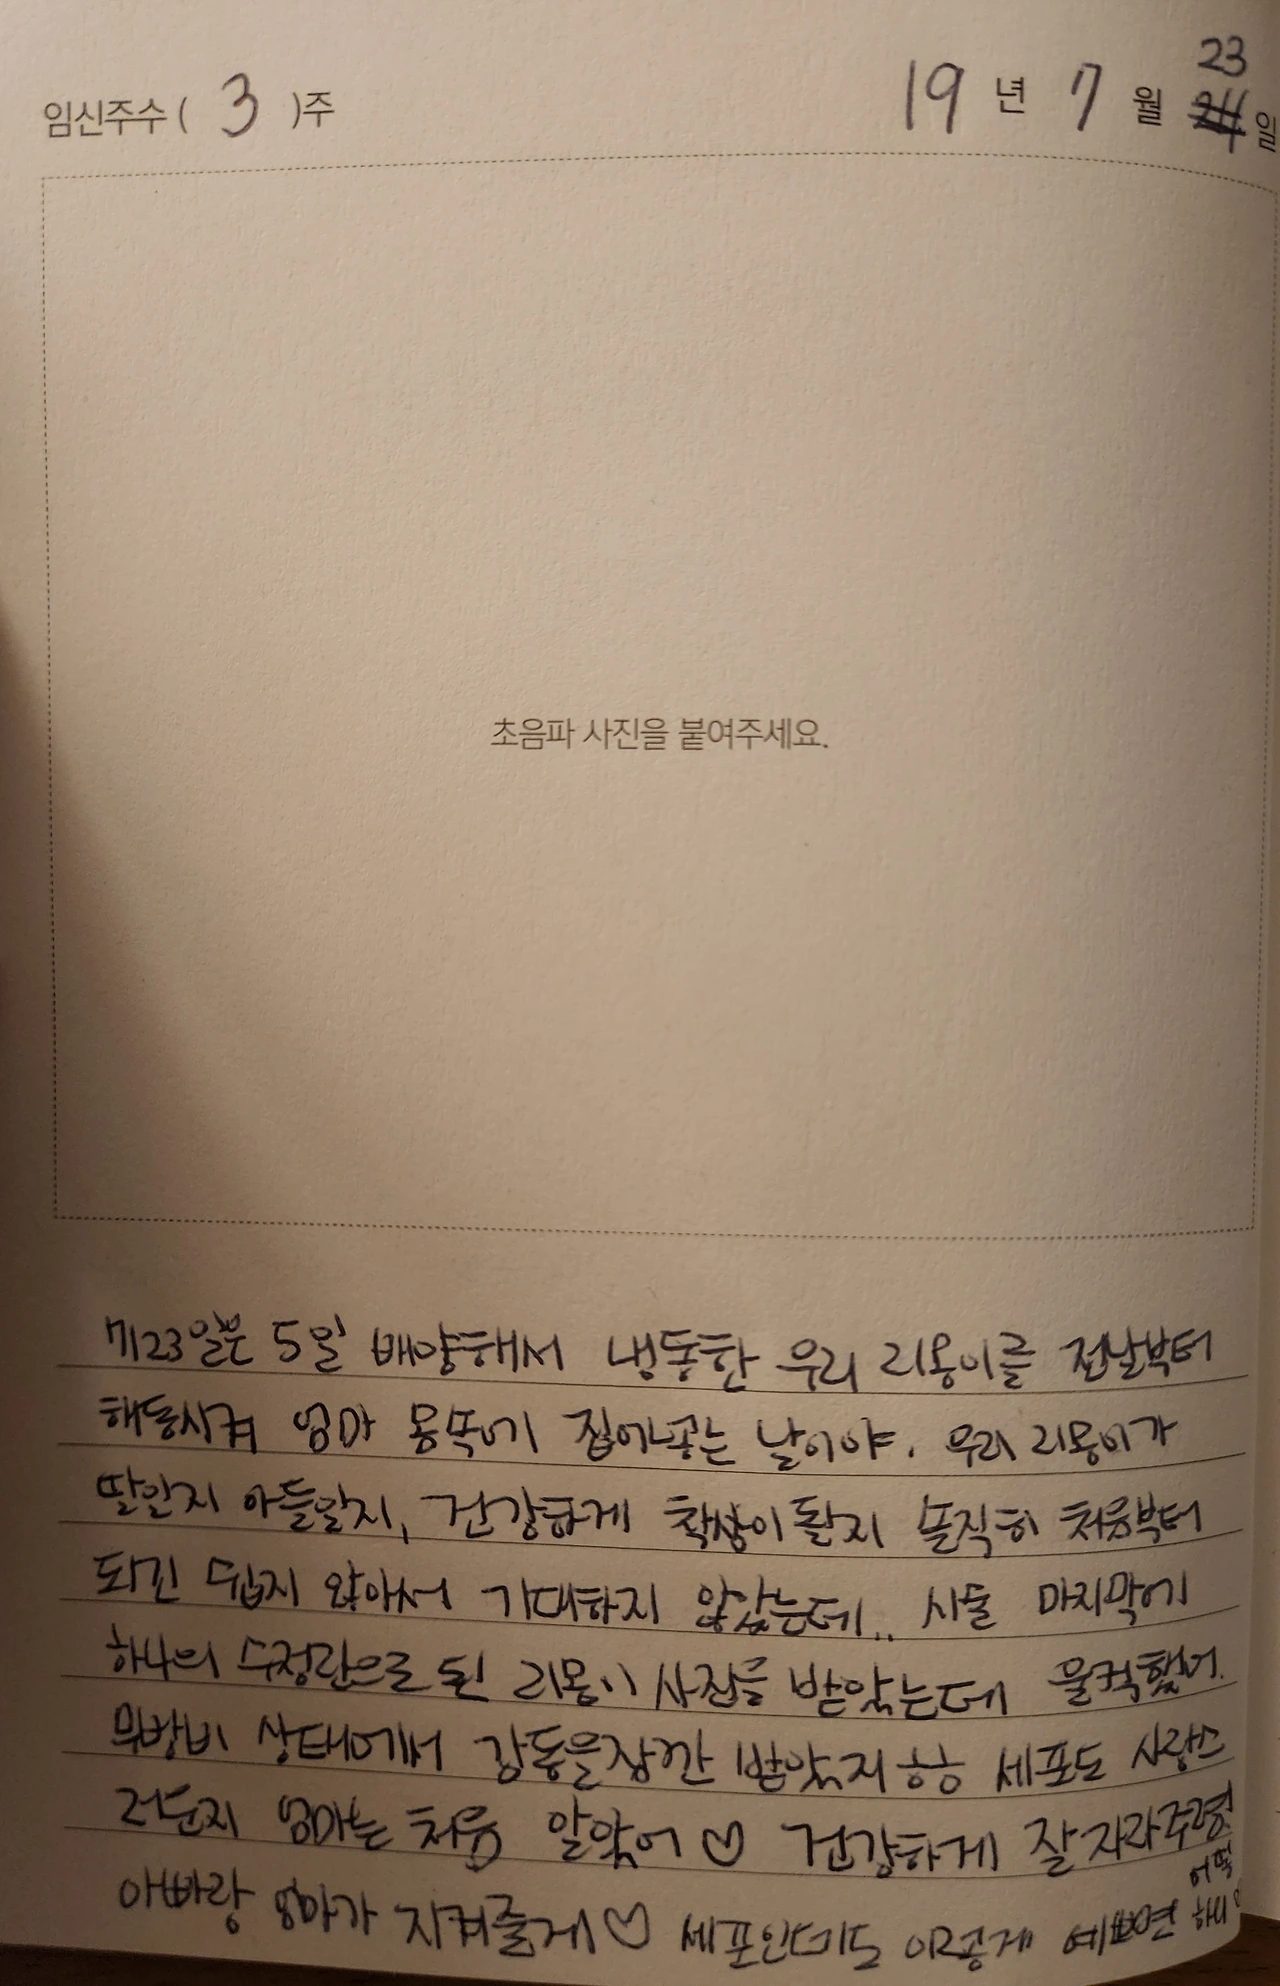 임신주수 ( 3 )주
19 년 7 월 23 일
초음파 사진을 붙여주세요.
7/23일은 5일 배양해서 냉동한 우리 리몽이를 전날부터
해동시켜 엄마 몸속에 집어넣는 날이야. 우리 리몽이가
딸일지 아들일지, 건강하게 착상이 될지 솔직히 처음부터
되긴 쉽지 않아서 기대하지 않았는데.. 시술 마지막에
하나의 수정란으로 된 리몽이 사진을 받았는데 울컥했어.
무방비 상태에서 감동을 잠깐 받았지 ㅎㅎ 세포도 사랑스
러운지 엄마는 처음 알았어 ♡ 건강하게 잘 자라주렴
아빠랑 엄마가 지켜줄게 ♡ 세포인데도 이렇게 예쁘면 어떡
하니